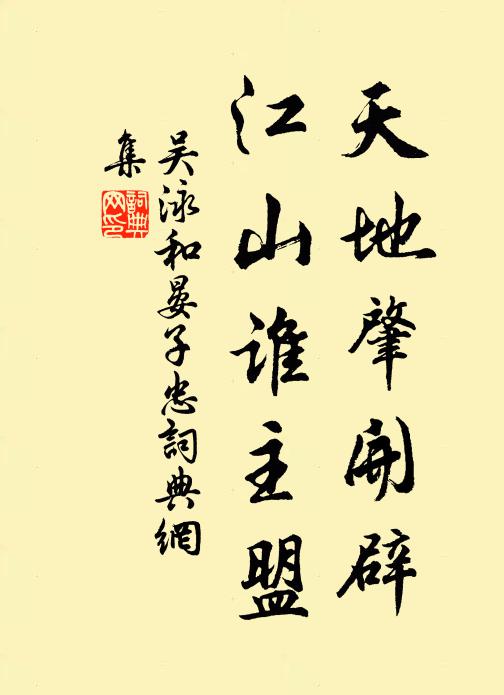 天地肇開辟
江山誰主盟
吴泳和晏子忠詞典網
集
詞典
网印